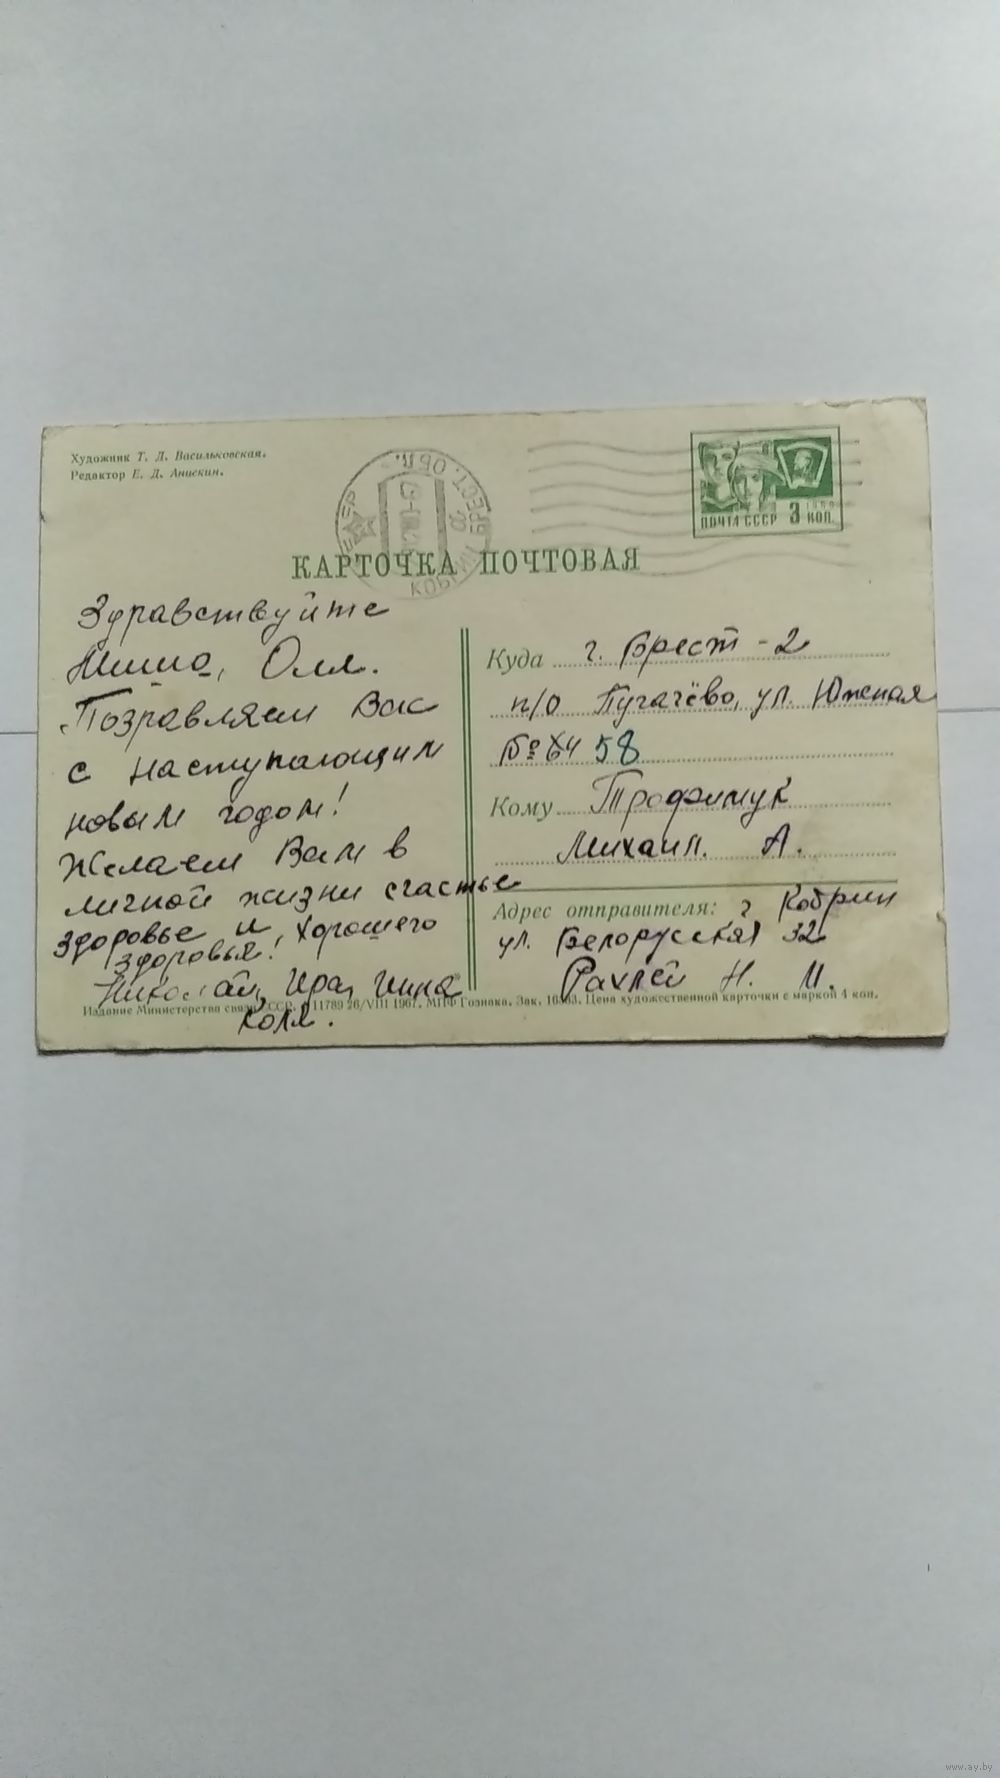 Художник Т. Л. Васильковская.
Редактор Е. Д. Анискин.
БРЕСТ. ОБЛ.
ПОЧТА СССР 3 КОП.
1966
КАРТОЧКА ПОЧТОВАЯ
Здравствуйте
Миша, Оля.
Поздравляем Вас
с наступающим
новым годом!
Желаем Вам в
личной жизни счастье
здоровье и хорошего
здоровья!
Николай, Ира, Нина
Коля.
Куда г. Брест-2
п/о Пугачёво, ул. Южная
№ 64 58
Кому Трофимук
Михаил. А.
Адрес отправителя: г Кобрин
ул. Белорусская 32
Рахлей Н. И.
Издание Министерства связи СССР. 11789 26/VIII 1967. МПФ Гознака. Зак. Цена художественной карточки с маркой 4 коп.
www.ay.by